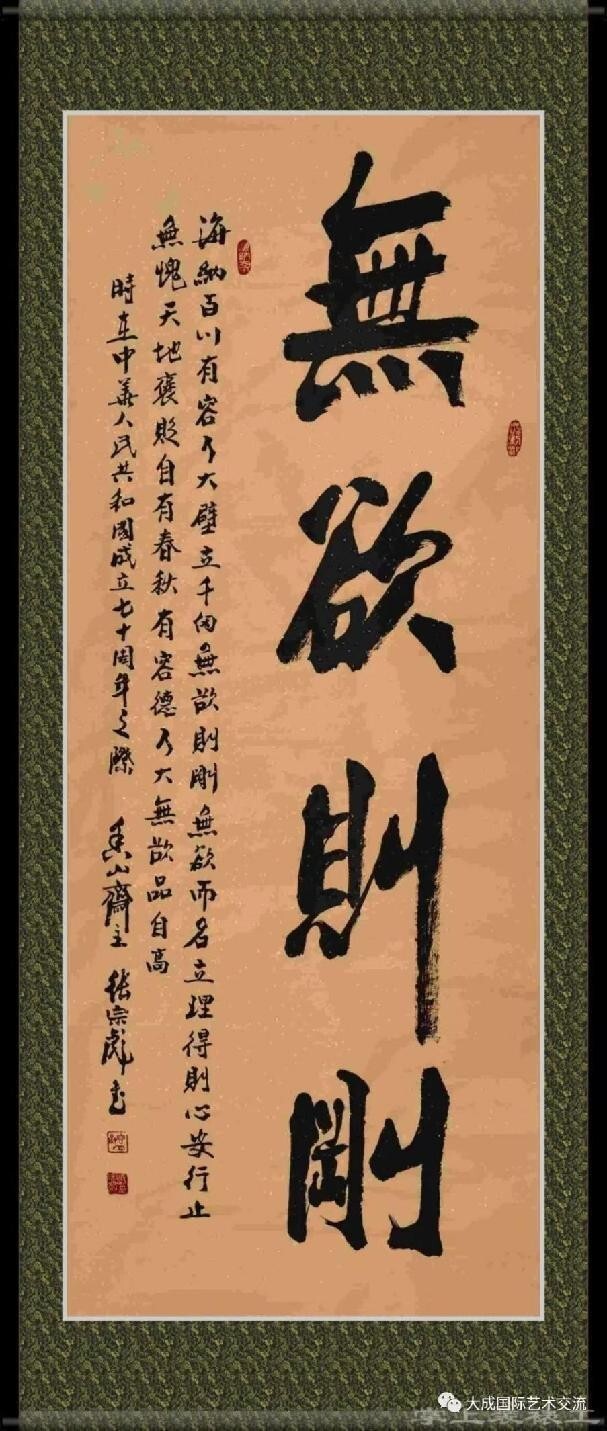 無欲則剛
海納百川有容乃大壁立千仞無欲則剛無欲而名立理得則心安行止
無愧天地褒貶自有春秋有容德乃大無欲品自高
時在中華人民共和國成立七十周年之際 香山齋主 張宗彪書
大成国际艺术交流
掌上装裱工